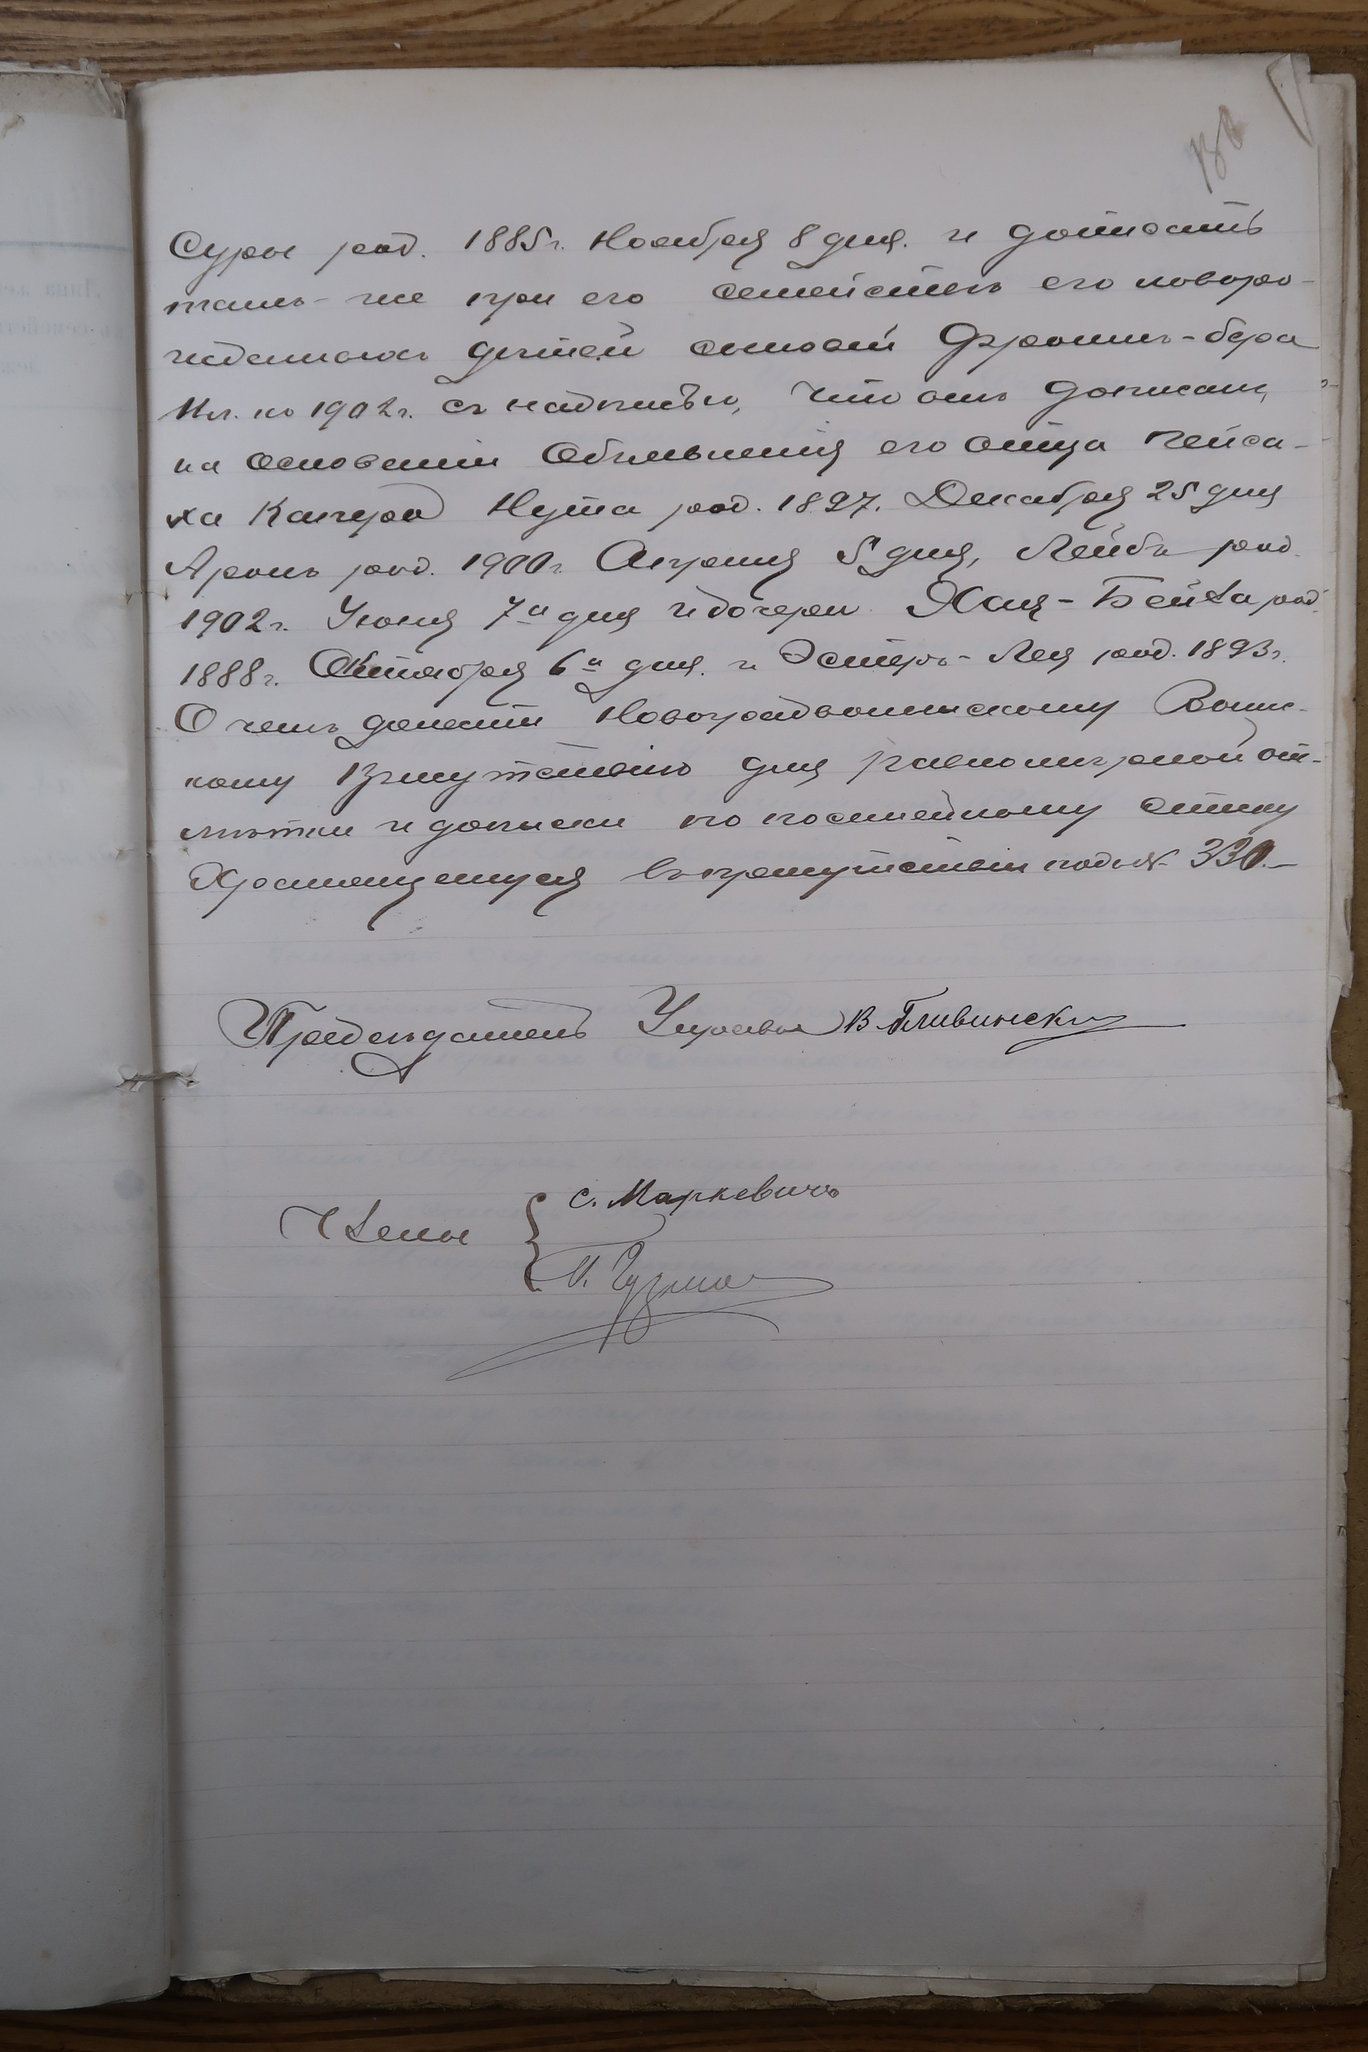 Суры род. 1885 г. Ноября 8 дня. и дописать
тамъ-же при его семействѣ его новоро-
жденныхъ дѣтей сыновей Фроимъ-бера
1902 г. съ надписью, что онъ дописанъ,
на основаніи объявленія его отца Пейса-
ха Нута род. 1897. Декабря 25 дня
Аронъ род. 1900 г. Апрѣля 5 дня, Лейба род.
1902 г. Іюня 7го дня и дочери Хая-Бейла род.
1888 г. Октября 6го дня. и Эстеръ-Лея род. 1893 г.
О чемъ донести Новоградволынскому Воин-
кому Присутствію для равномѣрной от-
мѣтки и дописки по посемейному списку
Хранящемуся въ присутствіи подъ № 330.—
Предсѣдатель Управы В. Пливинскі
Члены { С. Маркевичъ